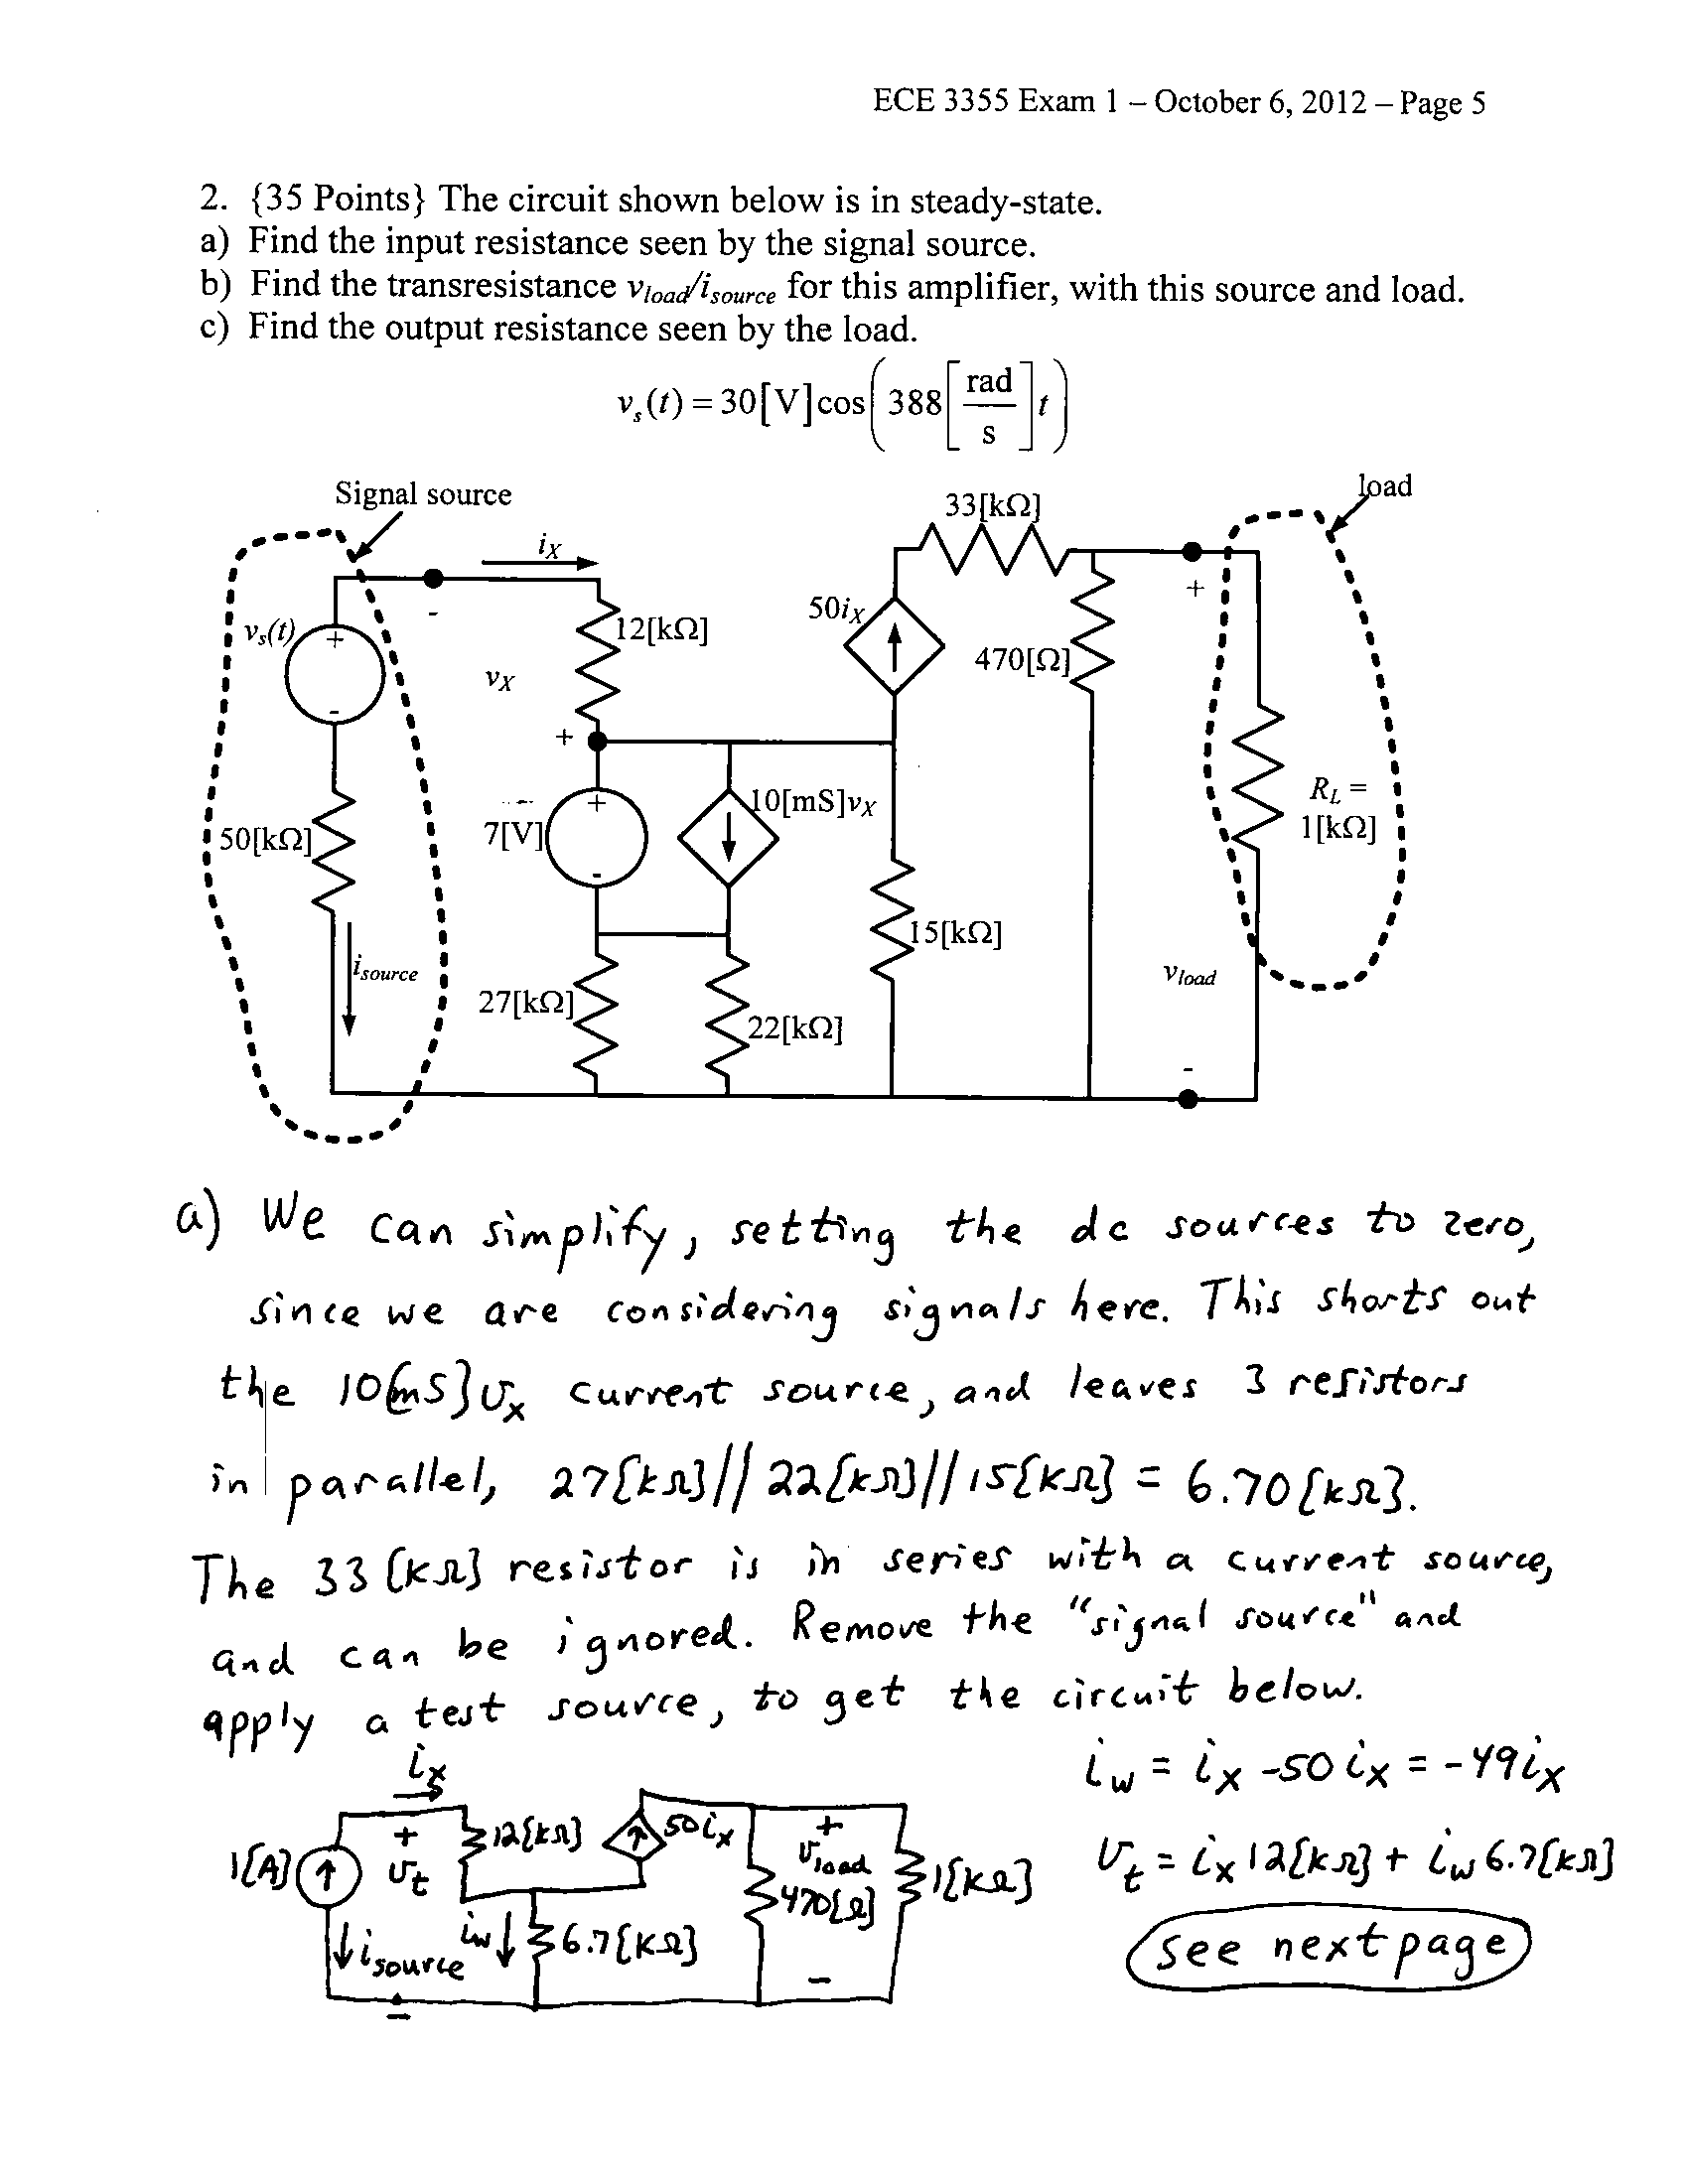 ECE 3355 Exam 1 – October 6, 2012 – Page 5
2. {35 Points} The circuit shown below is in steady-state.
a) Find the input resistance seen by the signal source.
b) Find the transresistance v_load/i_source for this amplifier, with this source and load.
c) Find the output resistance seen by the load.
v_s(t) = 30[V]cos(388[rad/s]t)
Signal source
load
33[kΩ]
i_X
+
-
v_s(t)
+
-
12[kΩ]
50i_X
470[Ω]
v_X
+
7[V]
+
-
10[mS]v_X
R_L =
1[kΩ]
50[kΩ]
15[kΩ]
i_source
v_load
27[kΩ]
22[kΩ]
-
a) We can simplify, setting the dc sources to zero,
since we are considering signals here. This shorts out
the 10[mS]v_x current source, and leaves 3 resistors
in parallel, 27[kΩ]//22[kΩ]//15[kΩ] = 6.70[kΩ].
The 33[kΩ] resistor is in series with a current source,
and can be ignored. Remove the "signal source" and
apply a test source, to get the circuit below.
i_x
i_w = i_x -50i_x = -49i_x
1[A]
+
v_t
-
12[kΩ]
50i_x
+
v_load
-
470[Ω]
1[kΩ]
v_t = i_x12[kΩ] + i_w6.7[kΩ]
i_source
i_w
6.7[kΩ]
see next page